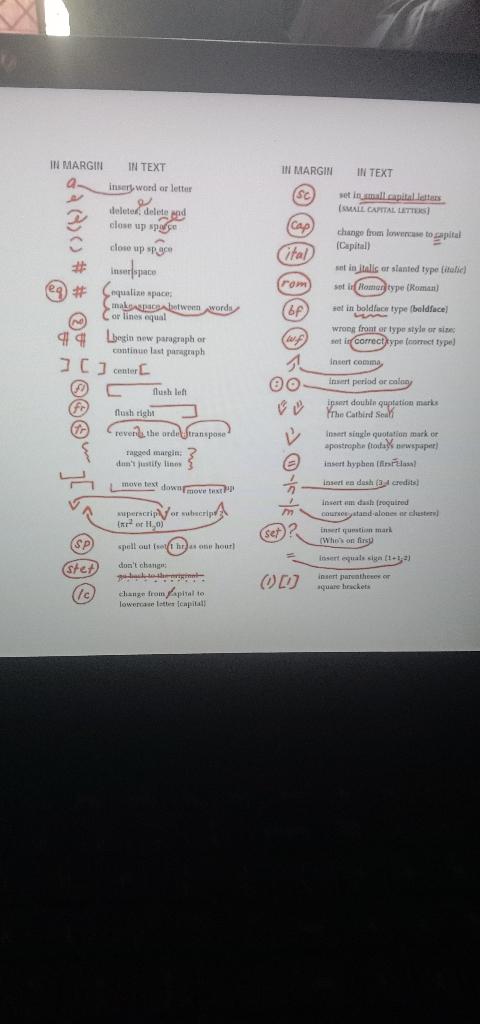 IN MARGIN IN TEXT
a insert word or letter
deleted, delete end
close up space
close up space
# insert space
eq # equalize space;
make space between words
or lines equal
¶ ¶ begin new paragraph or
continue last paragraph
] [ ] center [
fl flush left
fr flush right
tr reverse the order transpose
ragged margin;
don't justify lines
move text down move text up
superscript or subscript
(πr² or H₂0)
sp spell out (set 1 hr as one hour)
stet don't change;
go back to the original
lc change from Capital to
lowercase letter (capital)
IN MARGIN IN TEXT
sc set in small capital letters
(SMALL CAPITAL LETTERS)
cap change from lowercase to capital
(Capital)
ital set in italic or slanted type (italic)
rom set in Roman type (Roman)
bf set in boldface type (boldface)
wf wrong front or type style or size;
set in correct type (correct type)
insert comma
insert period or colon
insert double quotation marks
(The Catbird Seat)
insert single quotation mark or
apostrophe (todays newspaper)
= insert hyphen (first class)
1/n insert en dash (3-4 credits)
1/m insert em dash (required
courses stand-alones or clusters)
set ? insert question mark
(Who's on first)
= insert equals sign (1+1 2)
(1) [1] insert parentheses or
square brackets